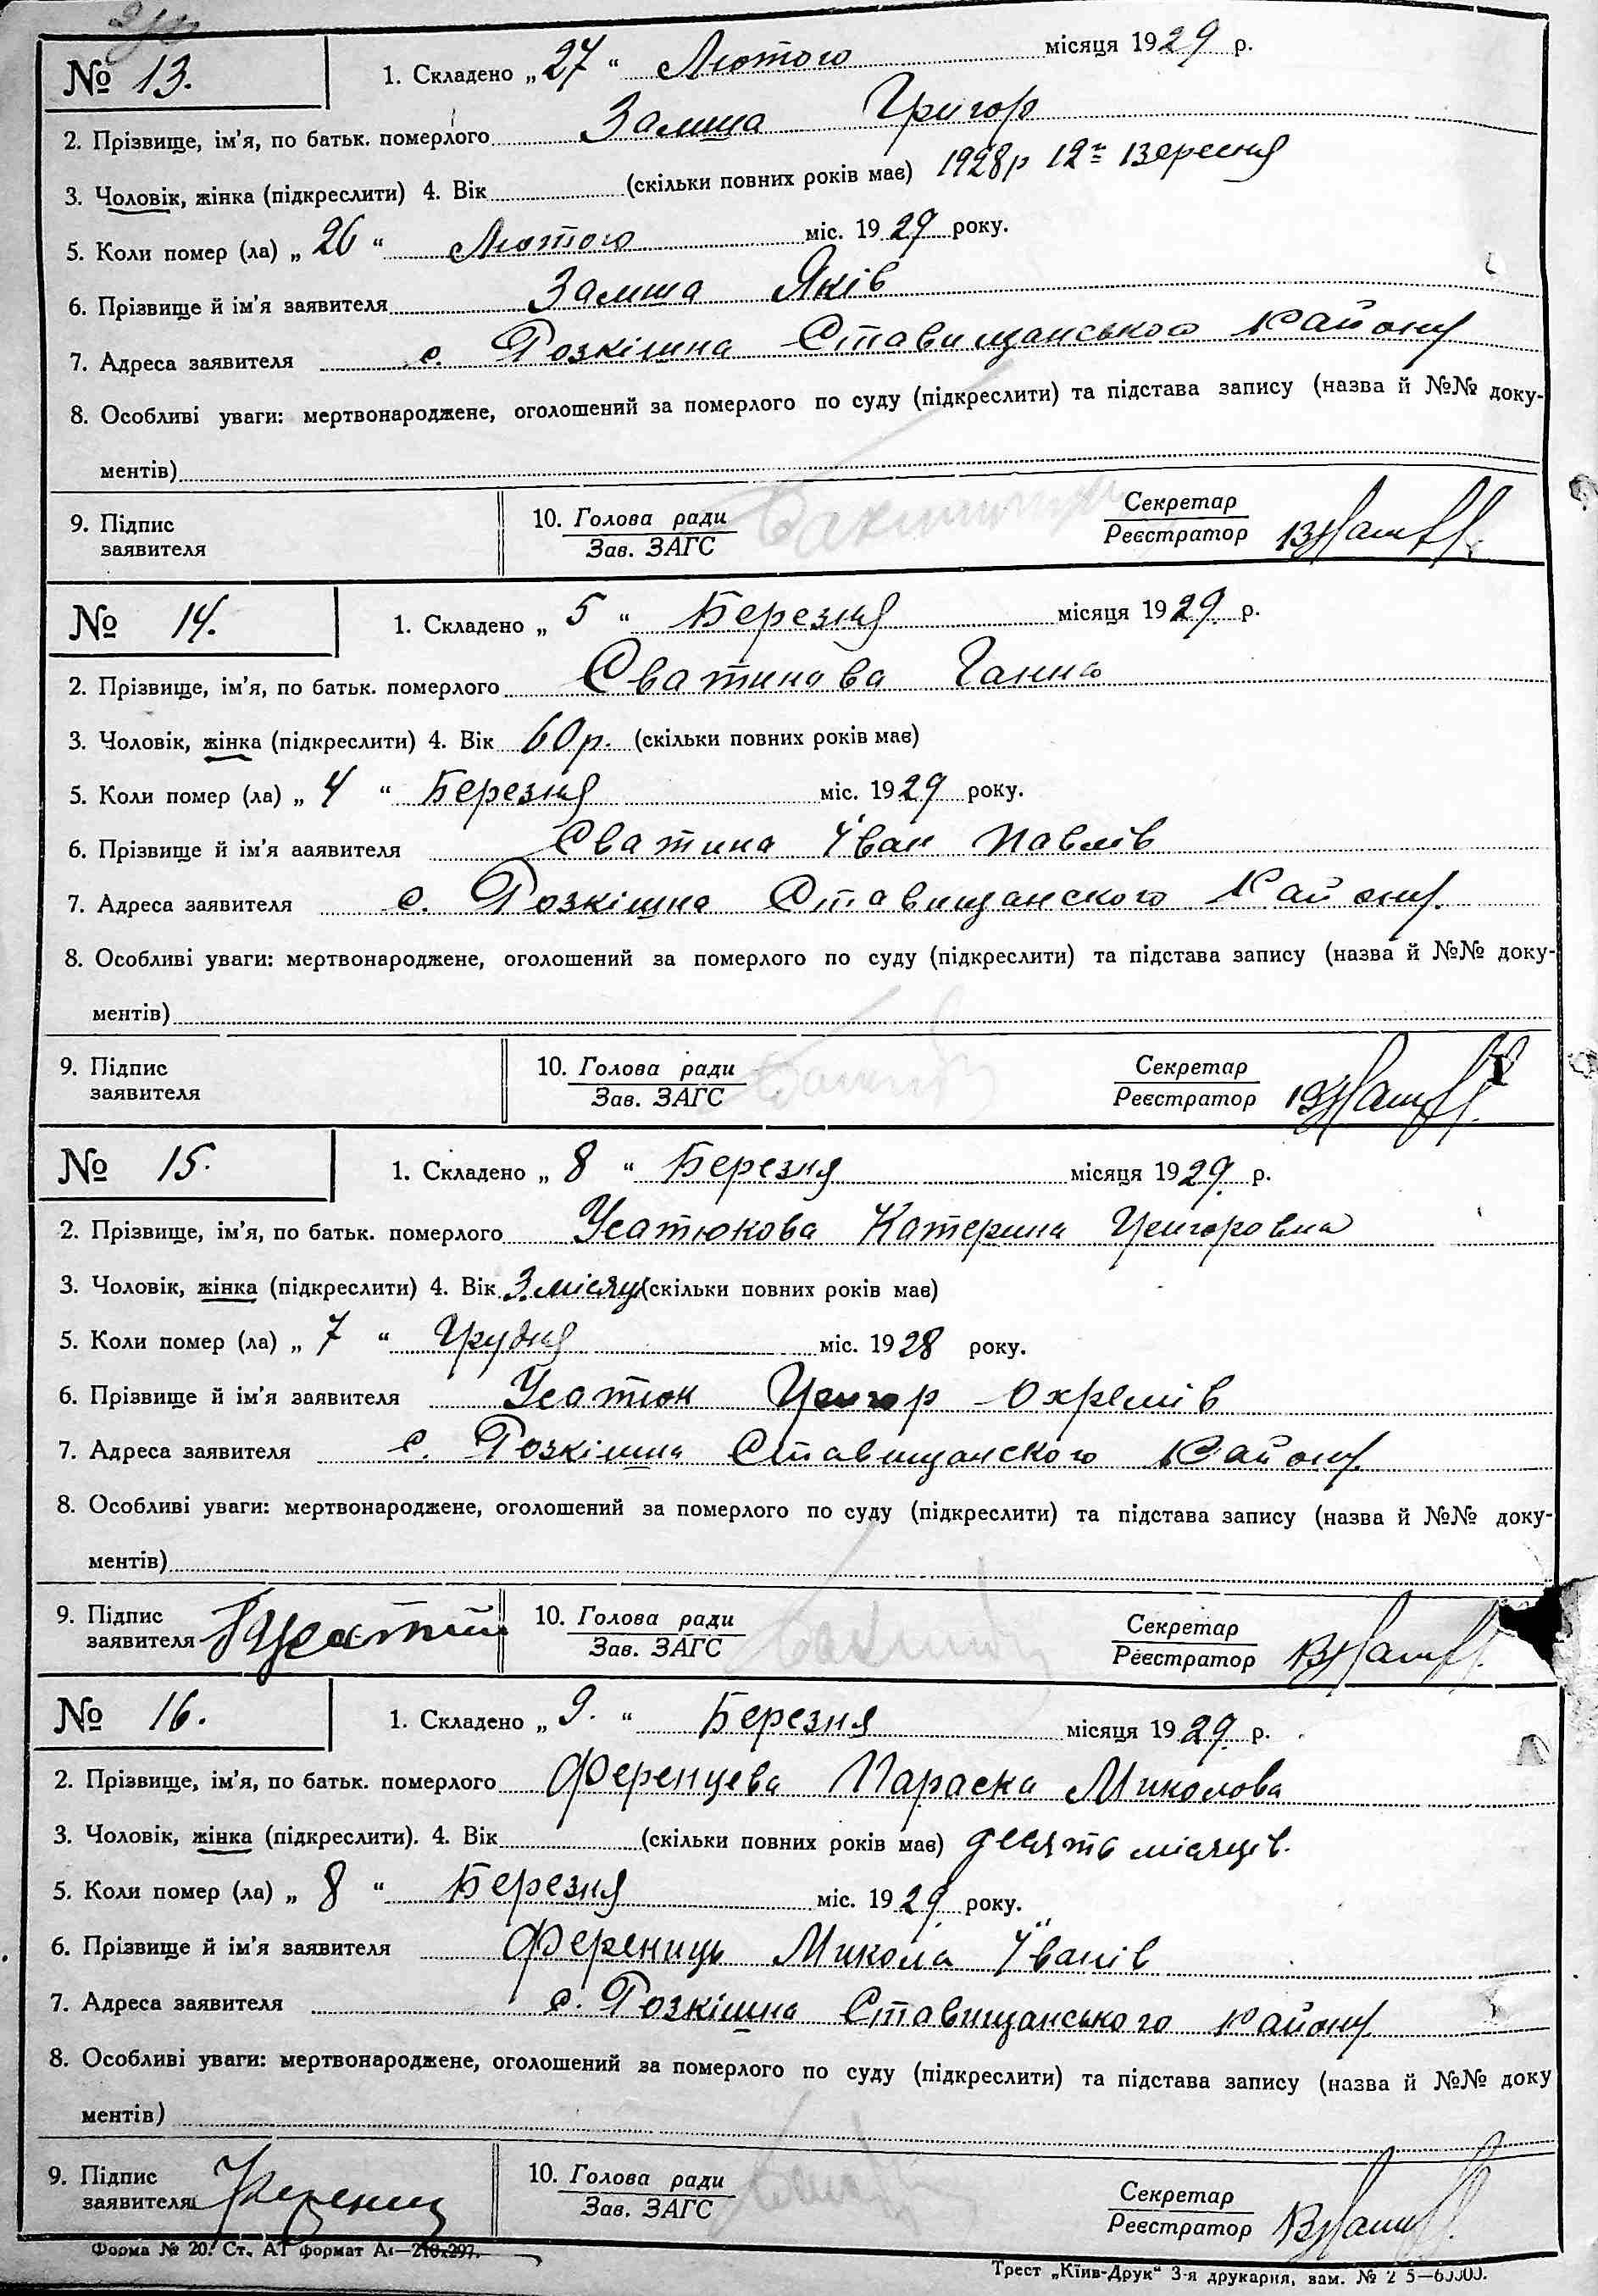 № 13.
1. Складено „ 27 “ Лютого місяця 1929 р.
2. Прізвище, ім'я, по батьк. померлого Замша Григор
3. Чоловік, жінка (підкреслити) 4. Вік (скільки повних років має) 1928 р 12го Вересня
5. Коли помер (ла) „ 26 “ Лютого міс. 1929 року.
6. Прізвище й ім'я заявителя Замша Яків
7. Адреса заявителя с. Розкішна Ставищанського Району
8. Особливі уваги: мертвонароджене, оголошений за померлого по суду (підкреслити) та підстава запису (назва й №№ доку-
ментів)
9. Підпис заявителя
10. Голова ради
Зав. ЗАГС
Секретар
Реєстратор
№ 14.
1. Складено „ 5 “ Березня місяця 1929 р.
2. Прізвище, ім'я, по батьк. померлого Сватинова Ганна
3. Чоловік, жінка (підкреслити) 4. Вік 60 р. (скільки повних років має)
5. Коли помер (ла) „ 4 “ Березня міс. 1929 року.
6. Прізвище й ім'я заявителя Сватина Іван Павлів
7. Адреса заявителя с. Розкішна Ставищанского Району.
8. Особливі уваги: мертвонароджене, оголошений за померлого по суду (підкреслити) та підстава запису (назва й №№ доку-
ментів)
9. Підпис заявителя
10. Голова ради
Зав. ЗАГС
Секретар
Реєстратор
№ 15.
1. Складено „ 8 “ Березня місяця 1929. р.
2. Прізвище, ім'я, по батьк. померлого Усатюкова Катерина Григоровна
3. Чоловік, жінка (підкреслити) 4. Вік 3 місяці (скільки повних років має)
5. Коли помер (ла) „ 7 “ Грудня міс. 1928 року.
6. Прізвище й ім'я заявителя Усатюк Григор Охремів
7. Адреса заявителя с. Розкішна Ставищанского Району
8. Особливі уваги: мертвонароджене, оголошений за померлого по суду (підкреслити) та підстава запису (назва й №№ доку-
ментів)
9. Підпис заявителя
10. Голова ради
Зав. ЗАГС
Секретар
Реєстратор
№ 16.
1. Складено „ 9. “ Березня місяця 1929. р.
2. Прізвище, ім'я, по батьк. померлого Ференцева Параска Миколова
3. Чоловік, жінка (підкреслити). 4. Вік (скільки повних років має) девять місяців.
5. Коли помер (ла) „ 8 “ Березня міс. 1929 року.
6. Прізвище й ім'я заявителя Ференць Микола Іванів
7. Адреса заявителя с. Розкішна Ставищанського Району
8. Особливі уваги: мертвонароджене, оголошений за померлого по суду (підкреслити) та підстава запису (назва й №№ доку
ментів)
9. Підпис заявителя Ференць
10. Голова ради
Зав. ЗАГС
Секретар
Реєстратор
Форма № 20. Ст. А1 формат А4—210х297.
Трест „Київ-Друк“ 3-я друкарня, зам. №